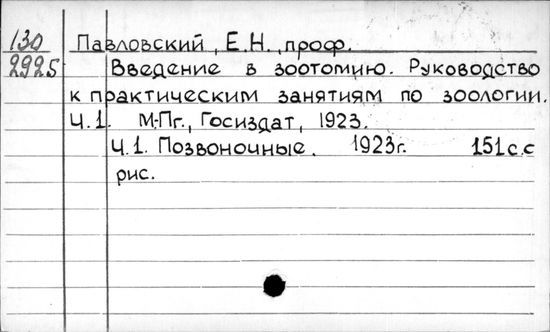 130
2925
Павловский, Е.Н., проф.
Введение в зоотомию. Руководство
к практическим занятиям по зоологии.
Ч.1. М-Пг., Госиздат, 1923.
Ч.1. Позвоночные. 1923г. 151с.с
рис.